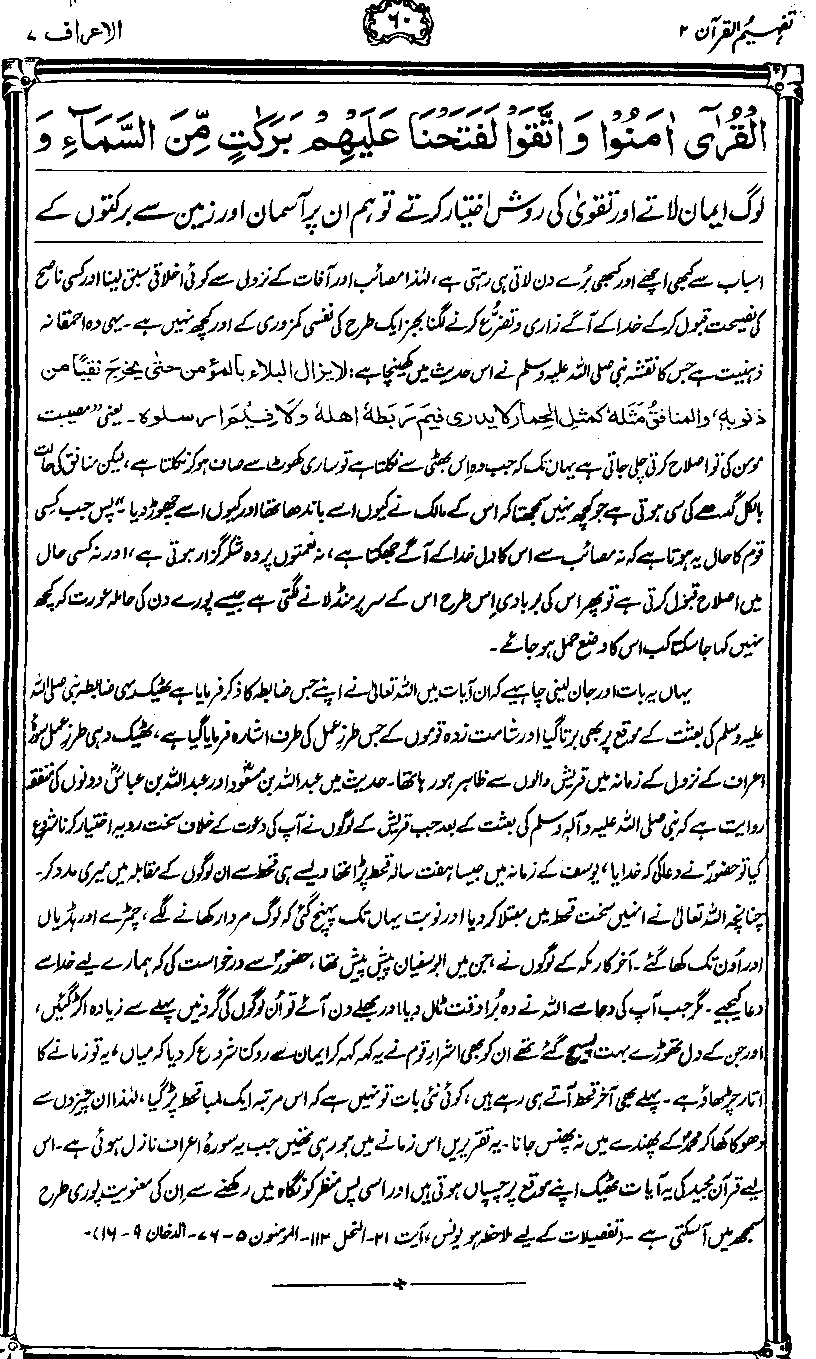 تفہیم القرآن ۲
۶۰
الاعراف ۷
الْقُرٰۤى اٰمَنُوْا وَ اتَّقَوْا لَفَتَحْنَا عَلَيْهِمْ بَرَكٰتٍ مِّنَ السَّمَآءِ وَ
لوگ ایمان لاتے اور تقویٰ کی روش اختیار کرتے تو ہم ان پر آسمان اور زمین سے برکتوں کے
اسباب سے کبھی اچھے اور کبھی بُرے دن لاتی ہی رہتی ہے، لہٰذا مصائب اور آفات کے نزول سے کوئی اخلاقی سبق لینا اور کسی ناصح
کی نصیحت قبول کر کے خدا کے آگے زاری و تضرُّع کرنے لگنا بجز ایک طرح کی نفسی کمزوری کے اور کچھ نہیں ہے۔ یہی وہ احمقانہ
ذہنیت ہے جس کا نقشہ نبی صلی اللہ علیہ وسلم نے اس حدیث میں کھینچا ہے: لایزال البلاء بالمؤمن حتی یخرج نقیًا من
ذنوبہٖ، والمنافقُ مَثَلہٗ کمثل الحمار لا یدری فیمَ ربطہٗ اھلہٗ ولا فیمَ ارسلوہ۔ یعنی "مصیبت
مومن کی تو اصلاح کرتی چلی جاتی ہے یہاں تک کہ جب وہ اِس بھٹی سے نکلتا ہے تو ساری کھوٹ سے صاف ہو کر نکلتا ہے، لیکن منافق کی حالت
بالکل گدھے کی سی ہوتی ہے جو کچھ نہیں سمجھتا کہ اس کے مالک نے کیوں اسے باندھا تھا اور کیوں اسے چھوڑ دیا"۔ پس جب کسی
قوم کا حال یہ ہوتا ہے کہ نہ مصائب سے اس کا دل خدا کے آگے جھکتا ہے، نہ نعمتوں پر وہ شکرگزار ہوتی ہے، اور نہ کسی حال
میں اصلاح قبول کرتی ہے تو پھر اس کی بربادی اِس طرح اس کے سر پر منڈلانے لگتی ہے جیسے پورے دن کی حاملہ عورت کہ کچھ
نہیں کہا جا سکتا کب اس کا وضع حمل ہو جائے۔
یہاں یہ بات اور جان لینی چاہیے کہ ان آیات میں اللہ تعالیٰ نے اپنے جس ضابطہ کا ذکر فرمایا ہے ٹھیک یہی ضابطہ نبی صلی اللہ
علیہ وسلم کی بعثت کے موقع پر بھی برتا گیا اور شامت زدہ قوموں کے جس طرزِ عمل کی طرف اشارہ فرمایا گیا ہے، ٹھیک وہی طرزِ عمل سورۂ
اعراف کے نزول کے زمانہ میں قریش والوں سے ظاہر ہو رہا تھا۔ حدیث میں عبداللہ بن مسعودؓ اور عبداللہ بن عباسؓ دونوں کی متفقہ
روایت ہے کہ نبی صلی اللہ علیہ وآلہ وسلم کی بعثت کے بعد جب قریش کے لوگوں نے آپ کی دعوت کے خلاف سخت رویہ اختیار کرنا شروع
کیا تو حضورؐ نے دعا کی کہ خدایا، یوسف کے زمانہ میں جیسا ہفت سالہ قحط پڑا تھا ویسے ہی قحط سے ان لوگوں کے مقابلہ میں میری مدد کر۔
چنانچہ اللہ تعالیٰ نے انہیں سخت قحط میں مبتلا کر دیا اور نوبت یہاں تک پہنچ گئی کہ لوگ مردار کھانے لگے، چمڑے اور ہڈیاں
اور اُون تک کھا گئے۔ آخر کار مکہ کے لوگوں نے، جن میں ابوسفیان پیش پیش تھا، حضورؐ سے درخواست کی کہ ہمارے لیے خدا سے
دعا کیجیے۔ مگر جب آپ کی دعا سے اللہ نے وہ بُرا وقت ٹال دیا اور بھلے دن آئے تو اُن لوگوں کی گردنیں پہلے سے زیادہ اکڑ گئیں،
اور جن کے دل تھوڑے بہت پسیج گئے تھے ان کو بھی اشرارِ قوم نے یہ کہہ کہہ کر ایمان سے روکنا شروع کر دیا کہ میاں، یہ تو زمانے کا
اتار چڑھاؤ ہے۔ پہلے بھی آخر قحط آتے ہی رہے ہیں، کوئی نئی بات تو نہیں ہے کہ اس مرتبہ ایک لمبا قحط پڑ گیا، لہٰذا ان چیزوں سے
دھوکا کھا کر محمدؐ کے پھندے میں نہ پھنس جانا۔ یہ تقریریں اس زمانے میں ہو رہی تھیں جب یہ سورۂ اعراف نازل ہوئی ہے۔ اس
لیے قرآن مجید کی یہ آیات ٹھیک اپنے موقع پر چسپاں ہوتی ہیں اور اسی پس منظر کو نگاہ میں رکھنے سے اِن کی معنویت پوری طرح
سمجھ میں آ سکتی ہے۔ (تفصیلات کے لیے ملاحظہ ہو یونس، آیت ۲۱۔ النحل ۱۱۲۔ المومنون ۵۔۷۶۔ الدخان ۹۔۱۶)۔